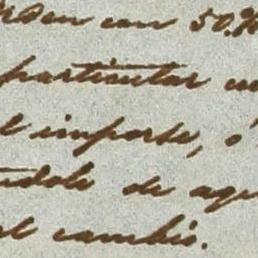 orden con 50.%
particular
el importe, ó
ndole de aqu
el cambio.